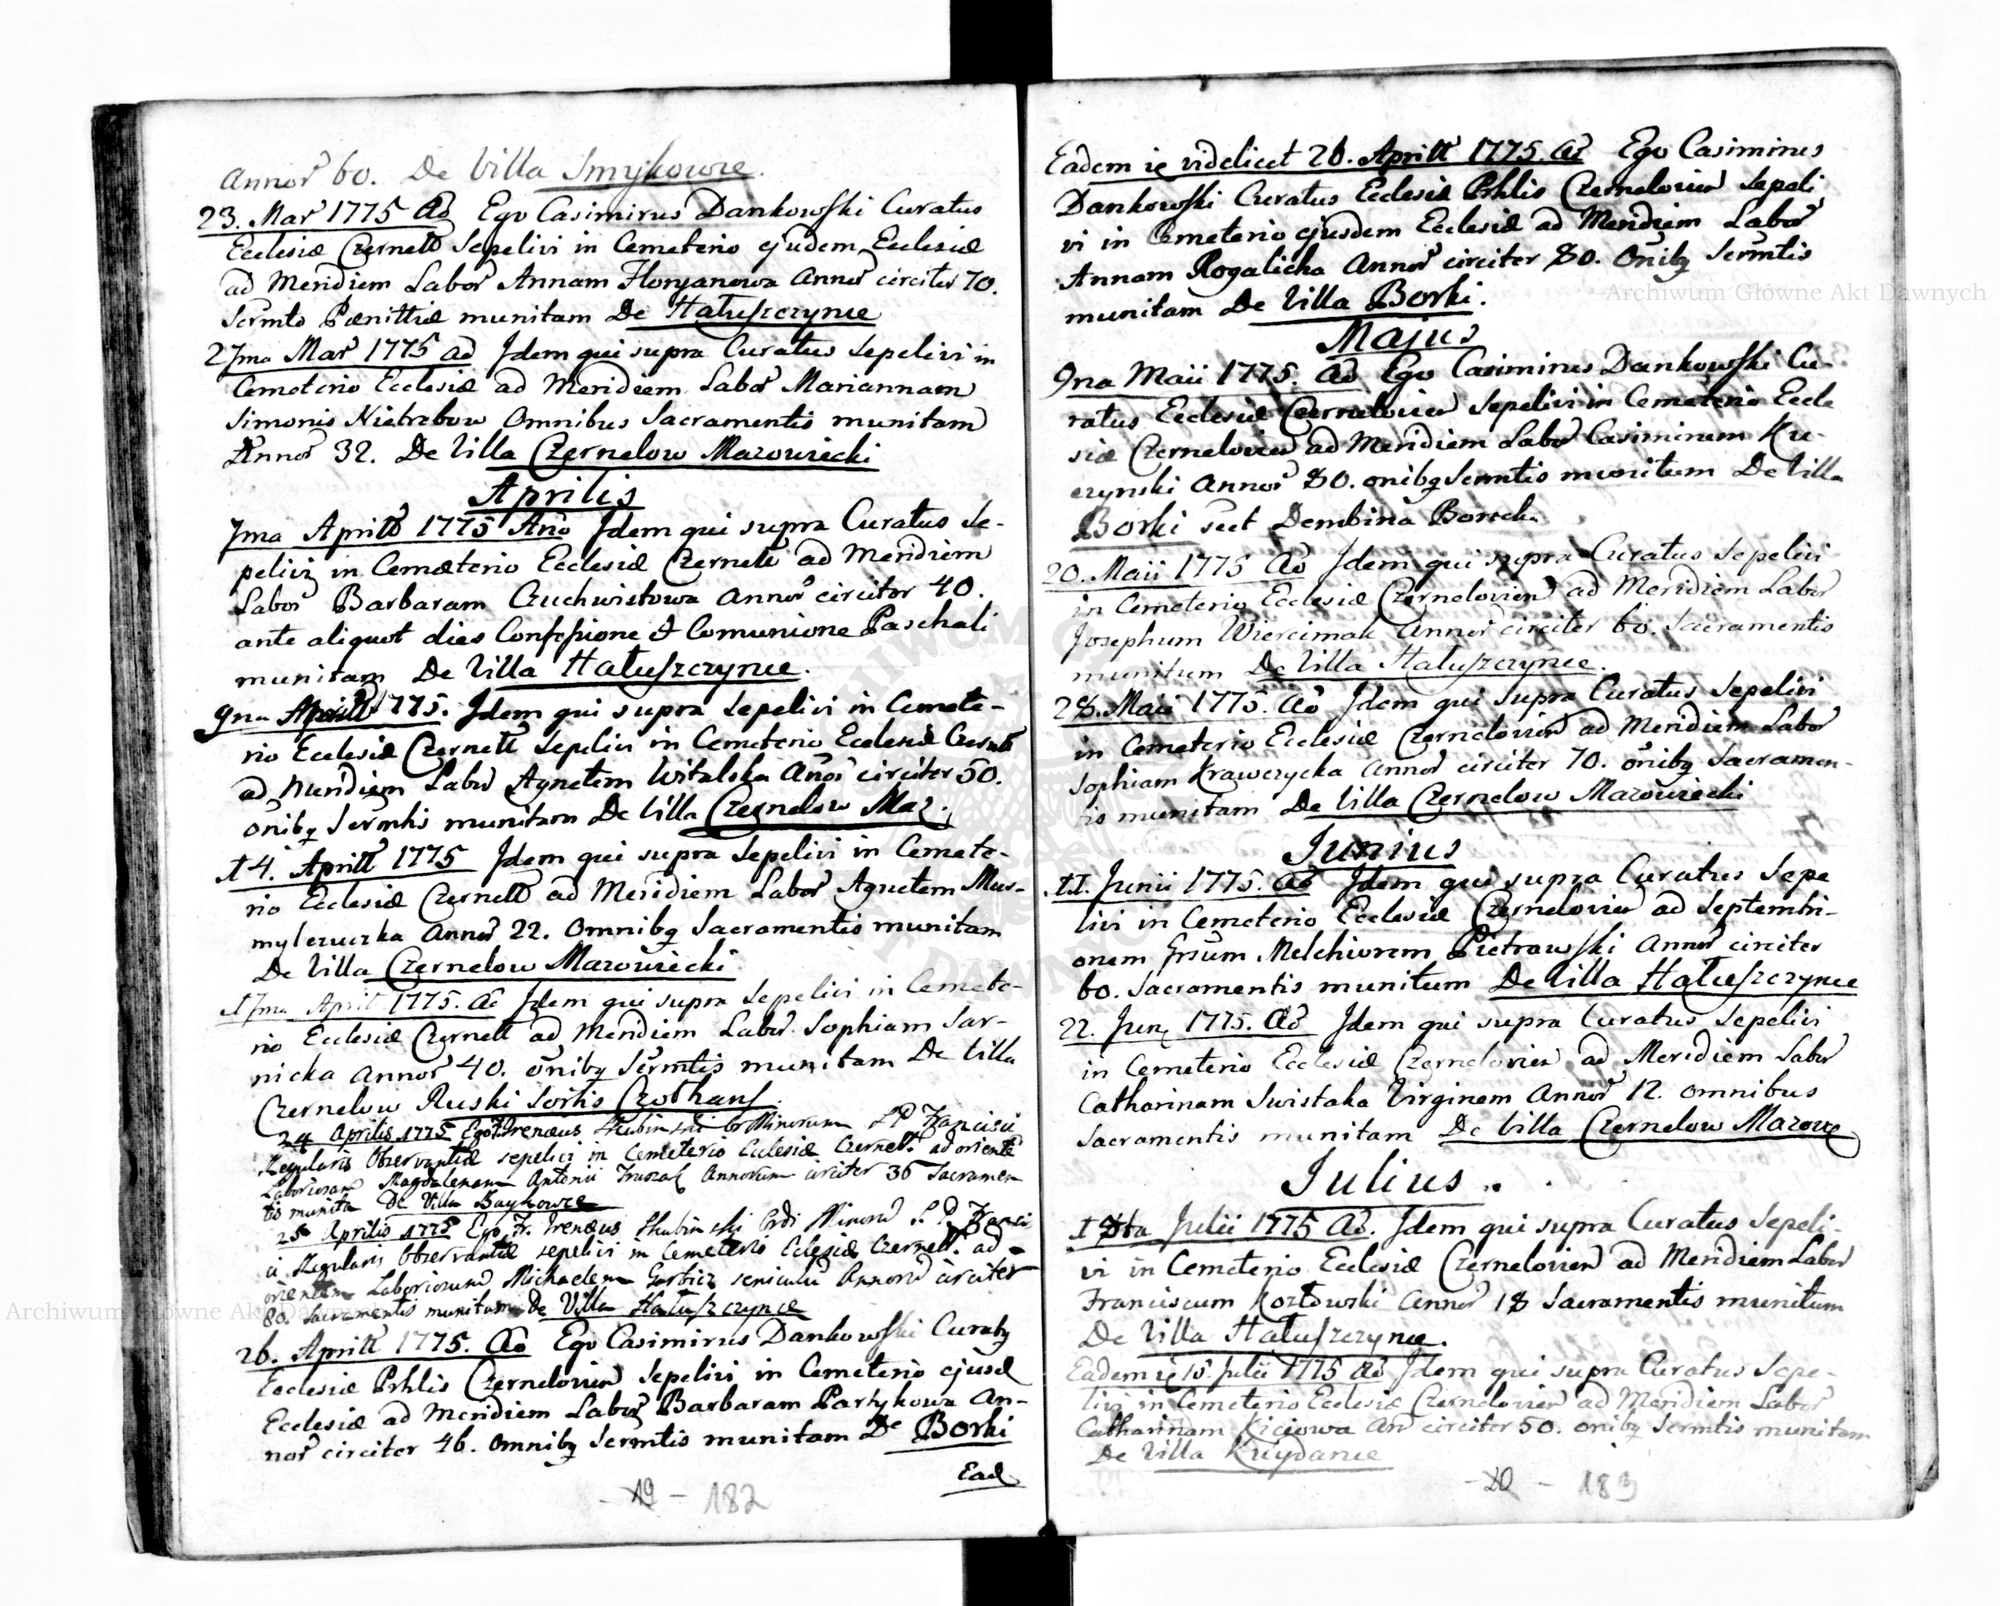 Annor̃ 60. De Villa Smykowce.
23. Mar̃ 1775 Ao Ego Casimirus Dankowski Curatus
Ecclesiæ Czernell Sepelivi in Cemeterio ejusdem Ecclesiæ
ad Meridiem Labor̃ Annam Floryanowa Annor̃ circiter 70.
Scrmto Pænittiæ munitam De Hałuszczynce
27ma Mar̃ 1775 ao Idem qui supra Curatus Sepelivi in
Cemeterio Ecclesiæ ad Meridiem Labor̃ Mariannam
Simonis Niebabow Omnibus Sacramentis munitam
Annor̃ 32. De Villa Czernelow Mazowiecki
Aprilis
7ma Aprill 1775 Ano Idem qui supra Curatus Se-
pelivi in Cemæterio Ecclesiæ Czernell ad Meridiem
Labor̃ Barbaram Czuchwistowa Annor̃ circiter 40.
ante aliquot dies Confessione et Comunione Paschali
munitam De Villa Hałuszczynce.
9na Aprill 1775. Idem qui supra Sepelivi in Cemete-
rio Ecclesiæ Czernell Sepelivi in Cemeterio Ecclesiæ Czernell
ad Meridiem Labor̃ Agnetem Witalska Anor̃ circiter 50.
onibg Sermtis munitam De Villa Czernelow Maz.
14. Aprill 1775 Idem qui supra Sepelivi in Cemete-
rio Ecclesiæ Czernell ad Meridiem Labor̃ Agnetem Mus-
myleczuczka Annor̃ 22. Omnibg Sacramentis munitam
De Villa Czernelow Mazowiecki
17ma Aprill 1775. Ao Idem qui supra Sepelivi in Cemete-
rio Ecclesiæ Czernell ad Meridiem Labor̃ Sophiam Sar-
nicka Annor̃ 40. onibg Sermtis munitam De Villa
Czernelow Ruski Sortis
24 Aprilis 1775 Ego Fr Irenæus Skubinski Or Minorum S P Francisci
Regularis Observantiæ sepelivi in Cemeterio Eclesiæ Czernell ad oriente
Laboriosam Magdalenam Antonii Annorum circiter 36 Sacramen
tis munita De Villa Baykowce
25 Aprilis 1775 Ego Fr. Irenæus Skubinski Ordi Minorũ S. P. Franci
ci Regularis Observantiæ sepelivi in Cemeterio Eclesiæ Czernell ad
orientem Laboriosum Michaelem Gorbicz seniculũ Annorũ circiter
80. Sacramentis munitum De Villa Hałuszczynce
26. Aprill 1775. Ao Ego Casimirus Dankowski Curatg
Ecclesiæ Prhlis Czernelovien Sepelivi in Cemeterio ejusd
Ecclesiæ ad Meridiem Labor̃ Barbaram Partykowa An-
nor̃ circiter 46. omnibg Sermtis munitam De Borki
Ead
- 19 - 182
Eadem ie videlicet 26. Aprill 1775. Ao Ego Casimirus
Dankowski Curatus Ecclesiæ Prhlis Czernelovien Sepeli
vi in Cemeterio ejusdem Ecclesiæ ad Meridiem Labor̃
Annam Rogalicka Annor̃ circiter 80. Onibg Sermtis
munitam De Villa Borki.
Majus
9na Maii 1775. Ao Ego Casimirus Dankowski Cu-
ratus Ecclesiæ Czernelovien Sepelivi in Cemeterio Eccle
siæ Czernelovien ad Meridiem Labor̃ Casimirum Ku-
czynski Annor̃ 80. onibg Sermtis munitum De Villa
Borki seet Dembina Boreck.
20. Maii 1775 Ao Idem qui supra Curatus Sepelivi
in Cemeterio Ecclesiæ Czernelovien ad Meridiem Labor̃
Josephum Wiercimak Annor̃ circiter 60. Sacramentis
munitum De Villa Hałuszczynce.
28. Maii 1775. Ao Idem qui supra Curatus Sepelivi
in Cemeterio Ecclesiæ Czernelovien ad Meridiem Labor̃
Sophiam Krawczycka Annor̃ circiter 70. onibg Sacramen-
tis munitam De Villa Czernelow Mazowiecki
Junius
11. Junii 1775. Ao Idem qui supra Curatus Sepe
livi in Cemeterio Ecclesiæ Czernelovien ad Septentri-
onem Melchiorem Pietrawski Annor̃ circiter
60. Sacramentis munitum De Villa Hałuszczynce
22. Junj 1775. Ao Idem qui supra Curatus Sepelivi
in Cemeterio Ecclesiæ Czernelovien ad Meridiem Labor̃
Catharinam Swistaka Virginem Annor̃ 12. omnibus
Sacramentis munitam De Villa Czernelow Mazowe
Julius.
18ta Julii 1775 Ao. Idem qui supra Curatus Sepeli-
vi in Cemeterio Ecclesiæ Czernelovien ad Meridiem Labor̃
Franciscum Kozłowski Annor̃ 18 Sacramentis munitum
De Villa Hałuszczynce.
Eadem ie 15. Julii 1775 Ao Idem qui supra Curatus Sepe-
livi in Cemeterio Ecclesiæ Czernelovien ad Meridiem Labor̃
Catharinam Kiciowa An circiter 50. onibg Sermtis munitam
De Villa Kuydance
- 20 - 183
Archiwum Główne Akt Dawnych
Archiwum Główne Akt Dawnych